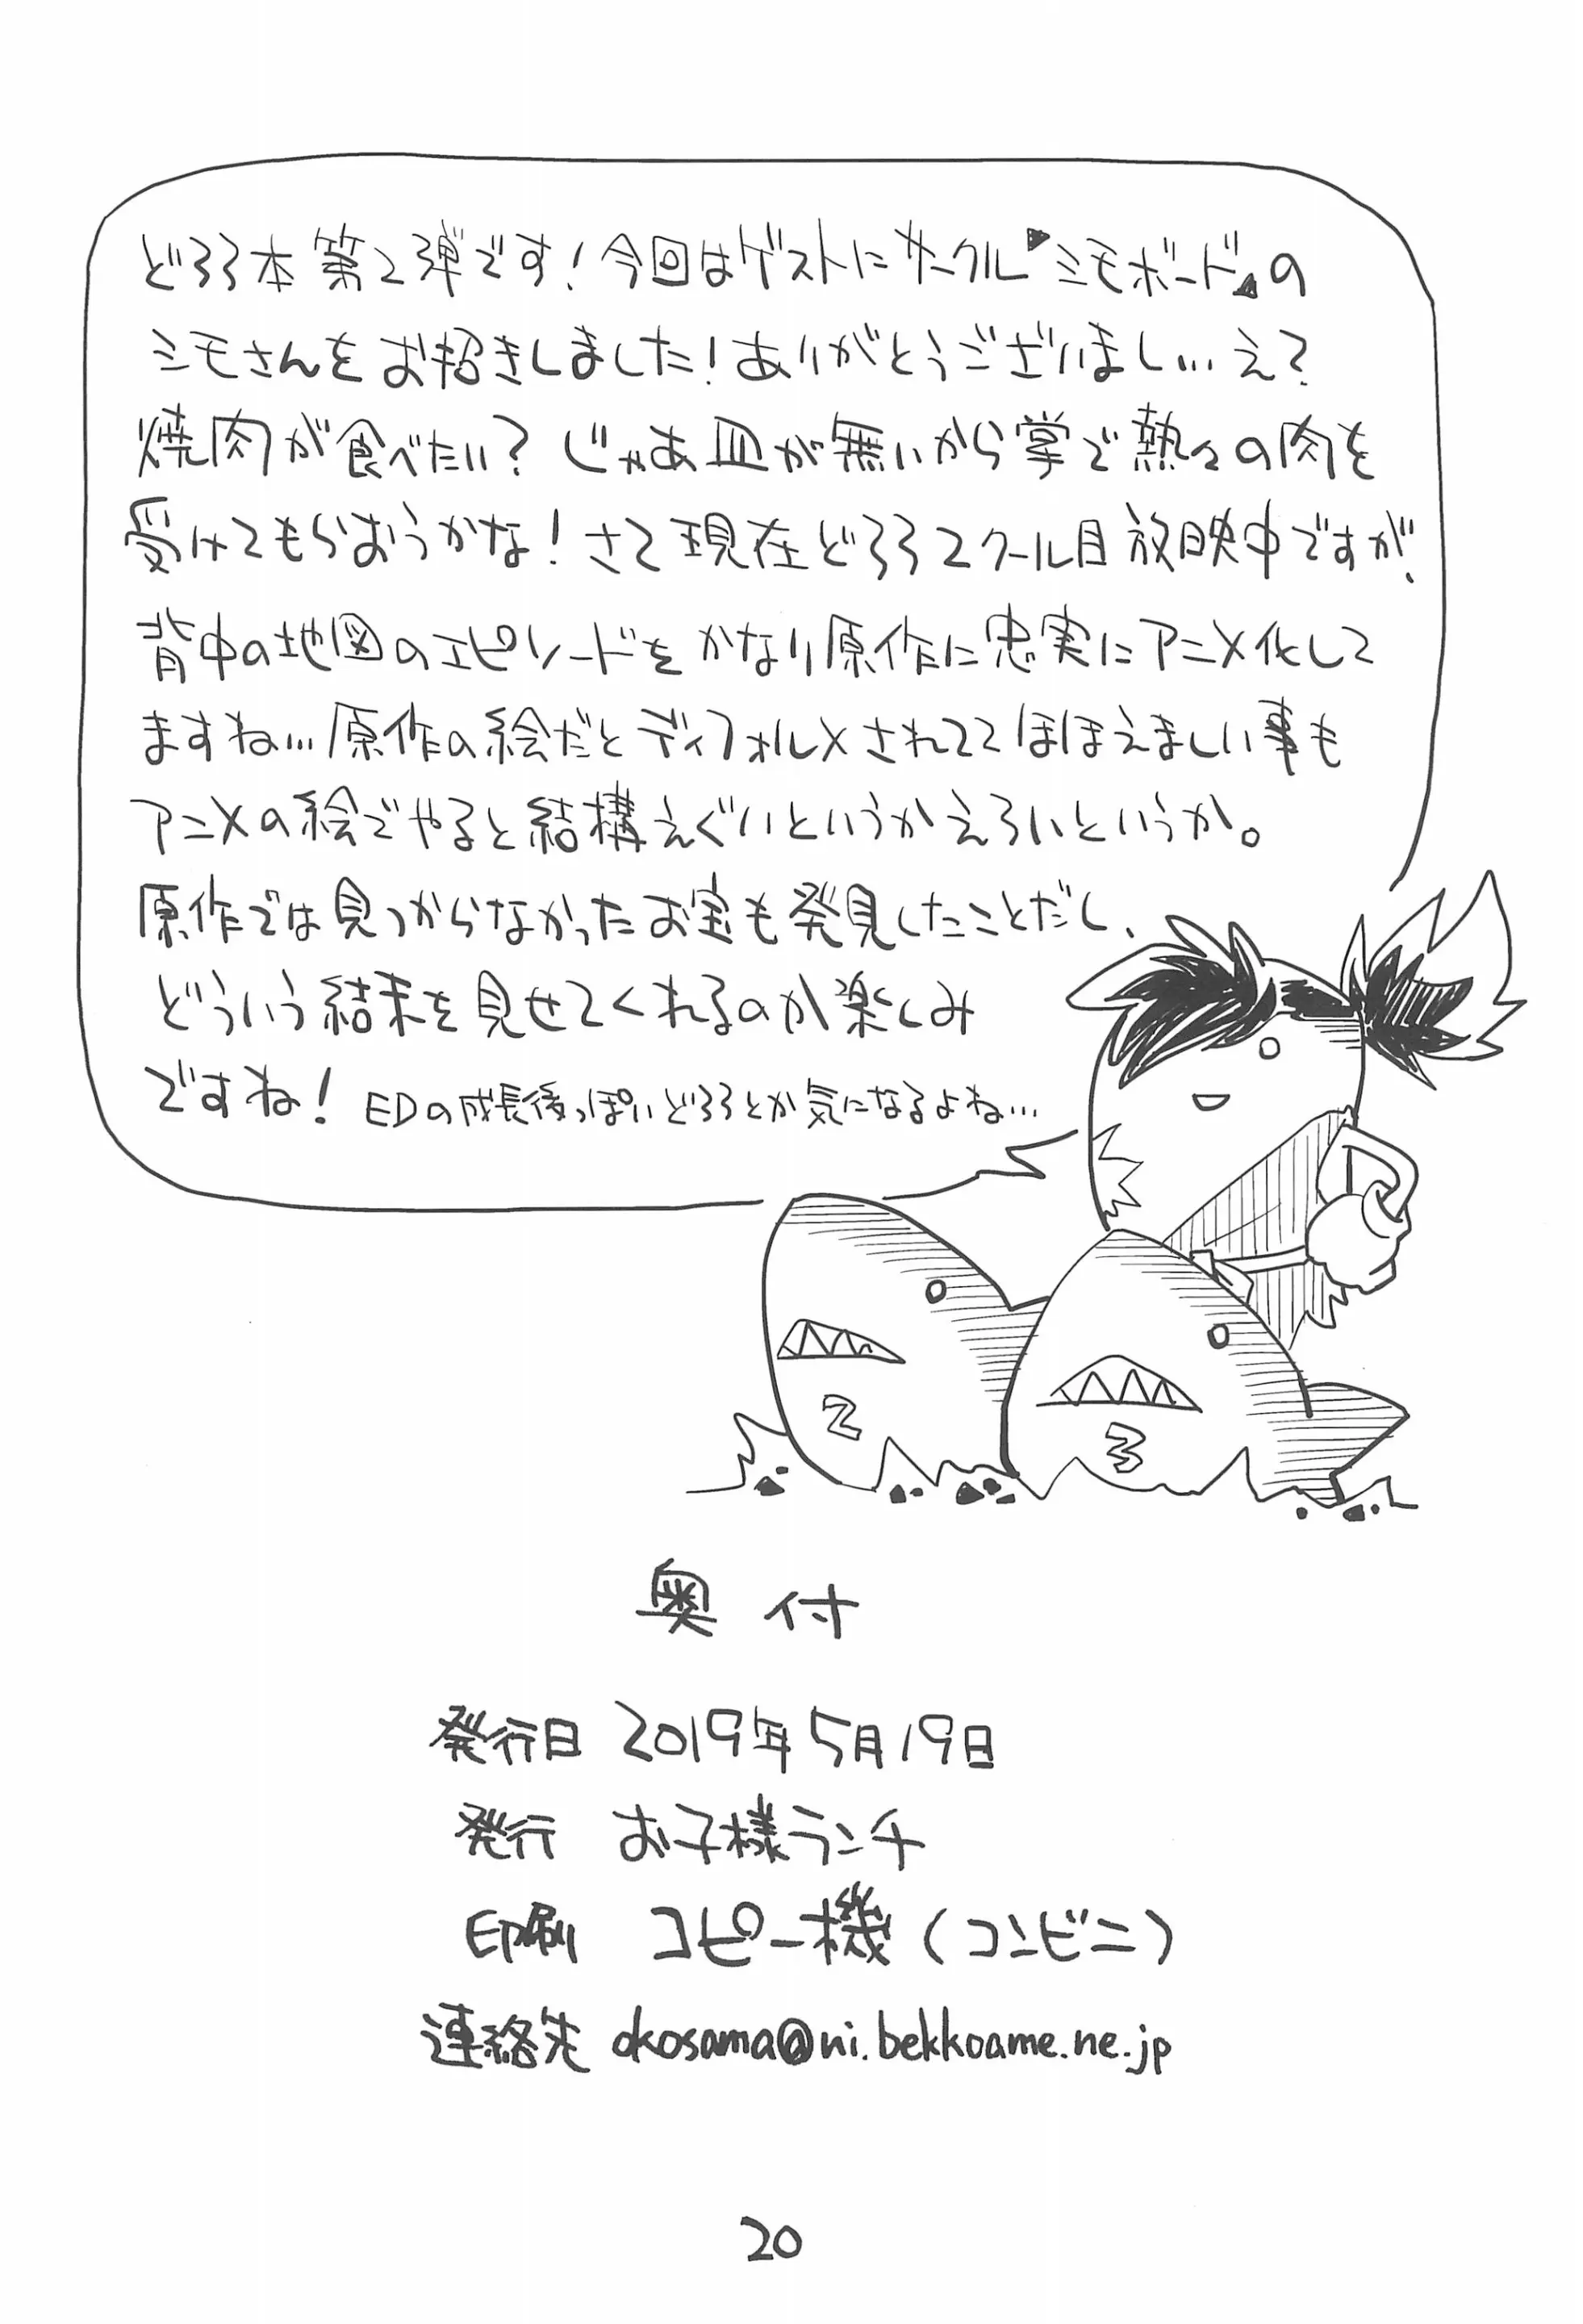 どろろ本第2弾です！今回はゲストにサークル『ミモボード』の
ミモさんをお招きしました！ありがとうございまし…え？
焼肉が食べたい？じゃあ皿が無いから掌で熱々の肉を
受けてもらおうかな！さて現在どろろ2クール目放映中ですが、
背中の地図のエピソードをかなり原作に忠実にアニメ化して
ますね…原作の絵だとディフォルメされててほほえましい事も
アニメの絵でやると結構えぐいというかえろいというか。
原作では見つからなかったお宝も発見したことだし、
どういう結末を見せてくれるのか楽しみ
ですね！EDの成長後っぽいどろろとか気になるよね…
2
3
奥付
発行日 2019年5月19日
発行 お子様ランチ
印刷 コピー機（コンビニ）
連絡先 okosama@ni.bekkoame.ne.jp
20